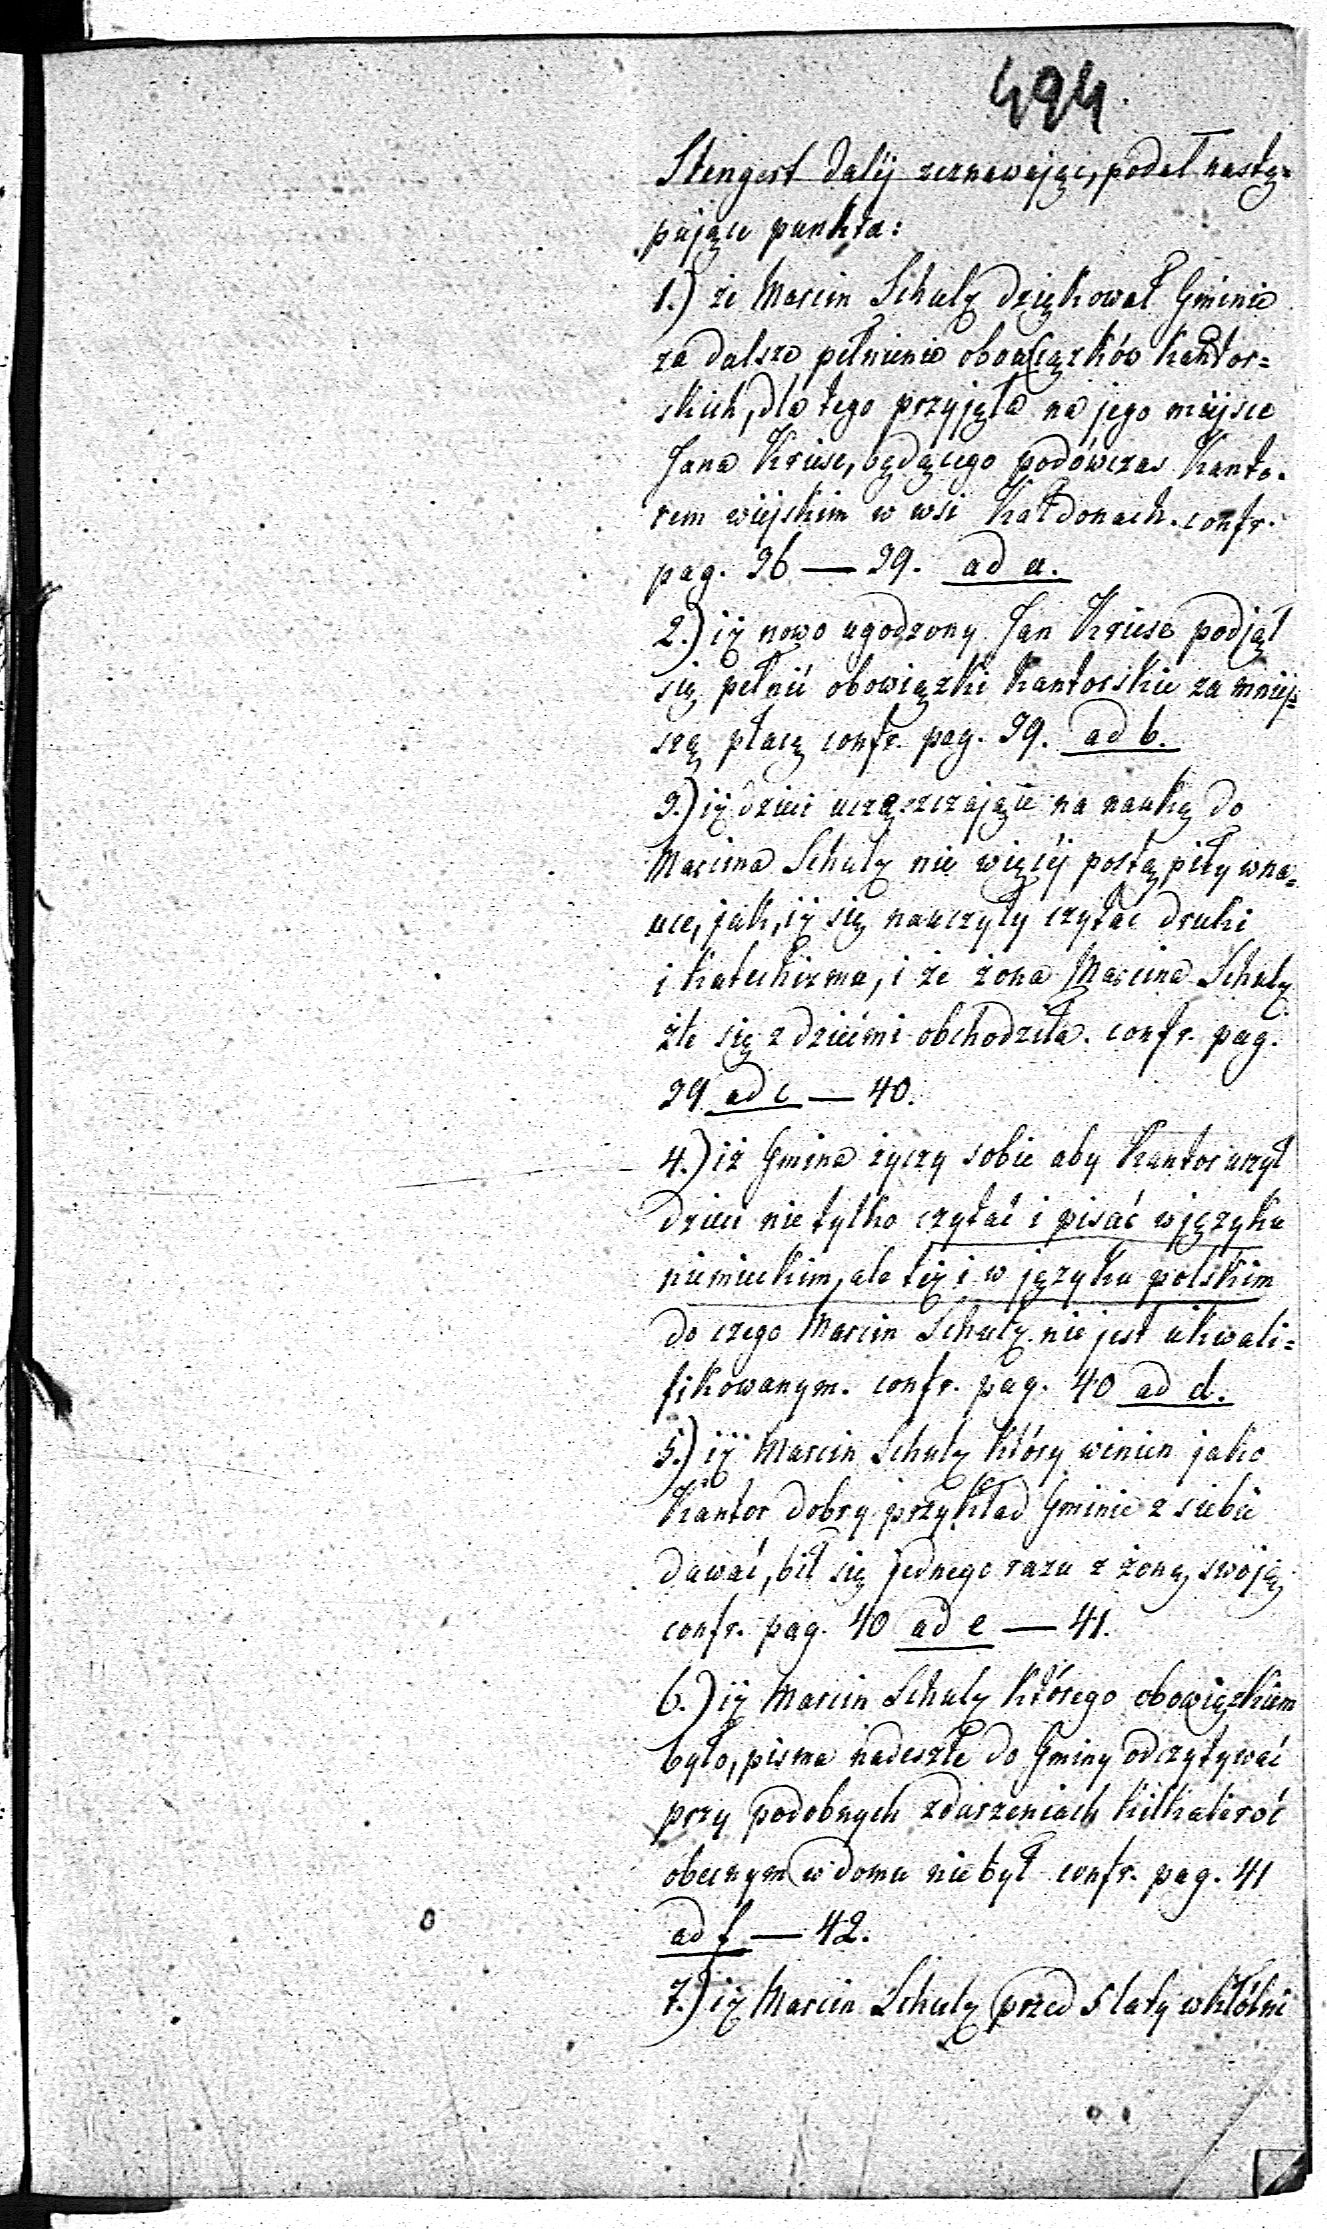 494.
Stengert daléj zeznawając, podał nastę=
pujące punkta:
1.) że Marcin Schulz dziękował Gminie
za dalsze pełnienie obowiązków kantor=
skich, dla tego przyjęła na jego miejsce
Jana Kriese, będącego podówczas Kanto=
rem wiejskim w wsi Kałdonach. confr.
pag. 36 — 39. ad a.
2.) iż nowo ugodzony Jan Kriese podjął
się pełnić obowiązki Kantorskie za mniej=
szą płacę confr. pag. 39. ad b.
3.) iż dzieci uczęszczające na naukę do
Marcina Schulz nie więcéj postąpiły w na=
uce, jak, iż się nauczyły czytać druki
i Katechizma, i że żona Marcina Schulz
źle się z dziećmi obchodziła. confr. pag.
39 ad c — 40.
4.) iż Gmina życzy sobie aby Kantor uczył
dzieci nie tylko czytać i pisać w języku
niemieckim, ale też i w języku polskim
do czego Marcin Schulz nie jest ukwali=
fikowanym. confr. pag. 40 ad d.
5.) iż Marcin Schulz który winien jako
Kantor dobry przykład Gminie z siebie
dawać, bił się jednego razu z żoną swoją
confr. pag. 40 ad e — 41.
6.) iż Marcin Schulz którego obowiązkiem
było, pisma nadeszłe do Gminy odczytywać
przy podobnych zdarzeniach kilkakroć
obecnym w domu nie był confr. pag. 41
ad f — 42.
7.) iż Marcin Schulz przed 5 laty w kłótni